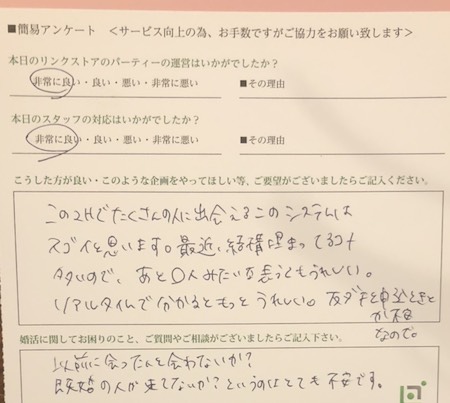 ■簡易アンケート ＜サービス向上の為、お手数ですがご協力をお願い致します＞
本日のリンクストアのパーティーの運営はいかがでしたか？
非常に良い・良い・悪い・非常に悪い ■その理由
本日のスタッフの対応はいかがでしたか？
非常に良い・良い・悪い・非常に悪い ■その理由
こうした方が良い・このような企画をやってほしい等、ご要望がございましたらご記入ください。
この2Hでたくさんの人に出会えるこのシステムは
スゴイと思います。最近、結構埋まってるコト
多いので、あと〇人みたいな表うてもうれしい。
リアルタイムで分かるともっとうれしい。友ダチと申込むとき
が不安
なので。
婚活に関してお困りのこと、ご質問やご相談がございましたらご記入下さい。
以前に会った人と会わないか？
既婚の人が来てないか？というのはとても不安です。